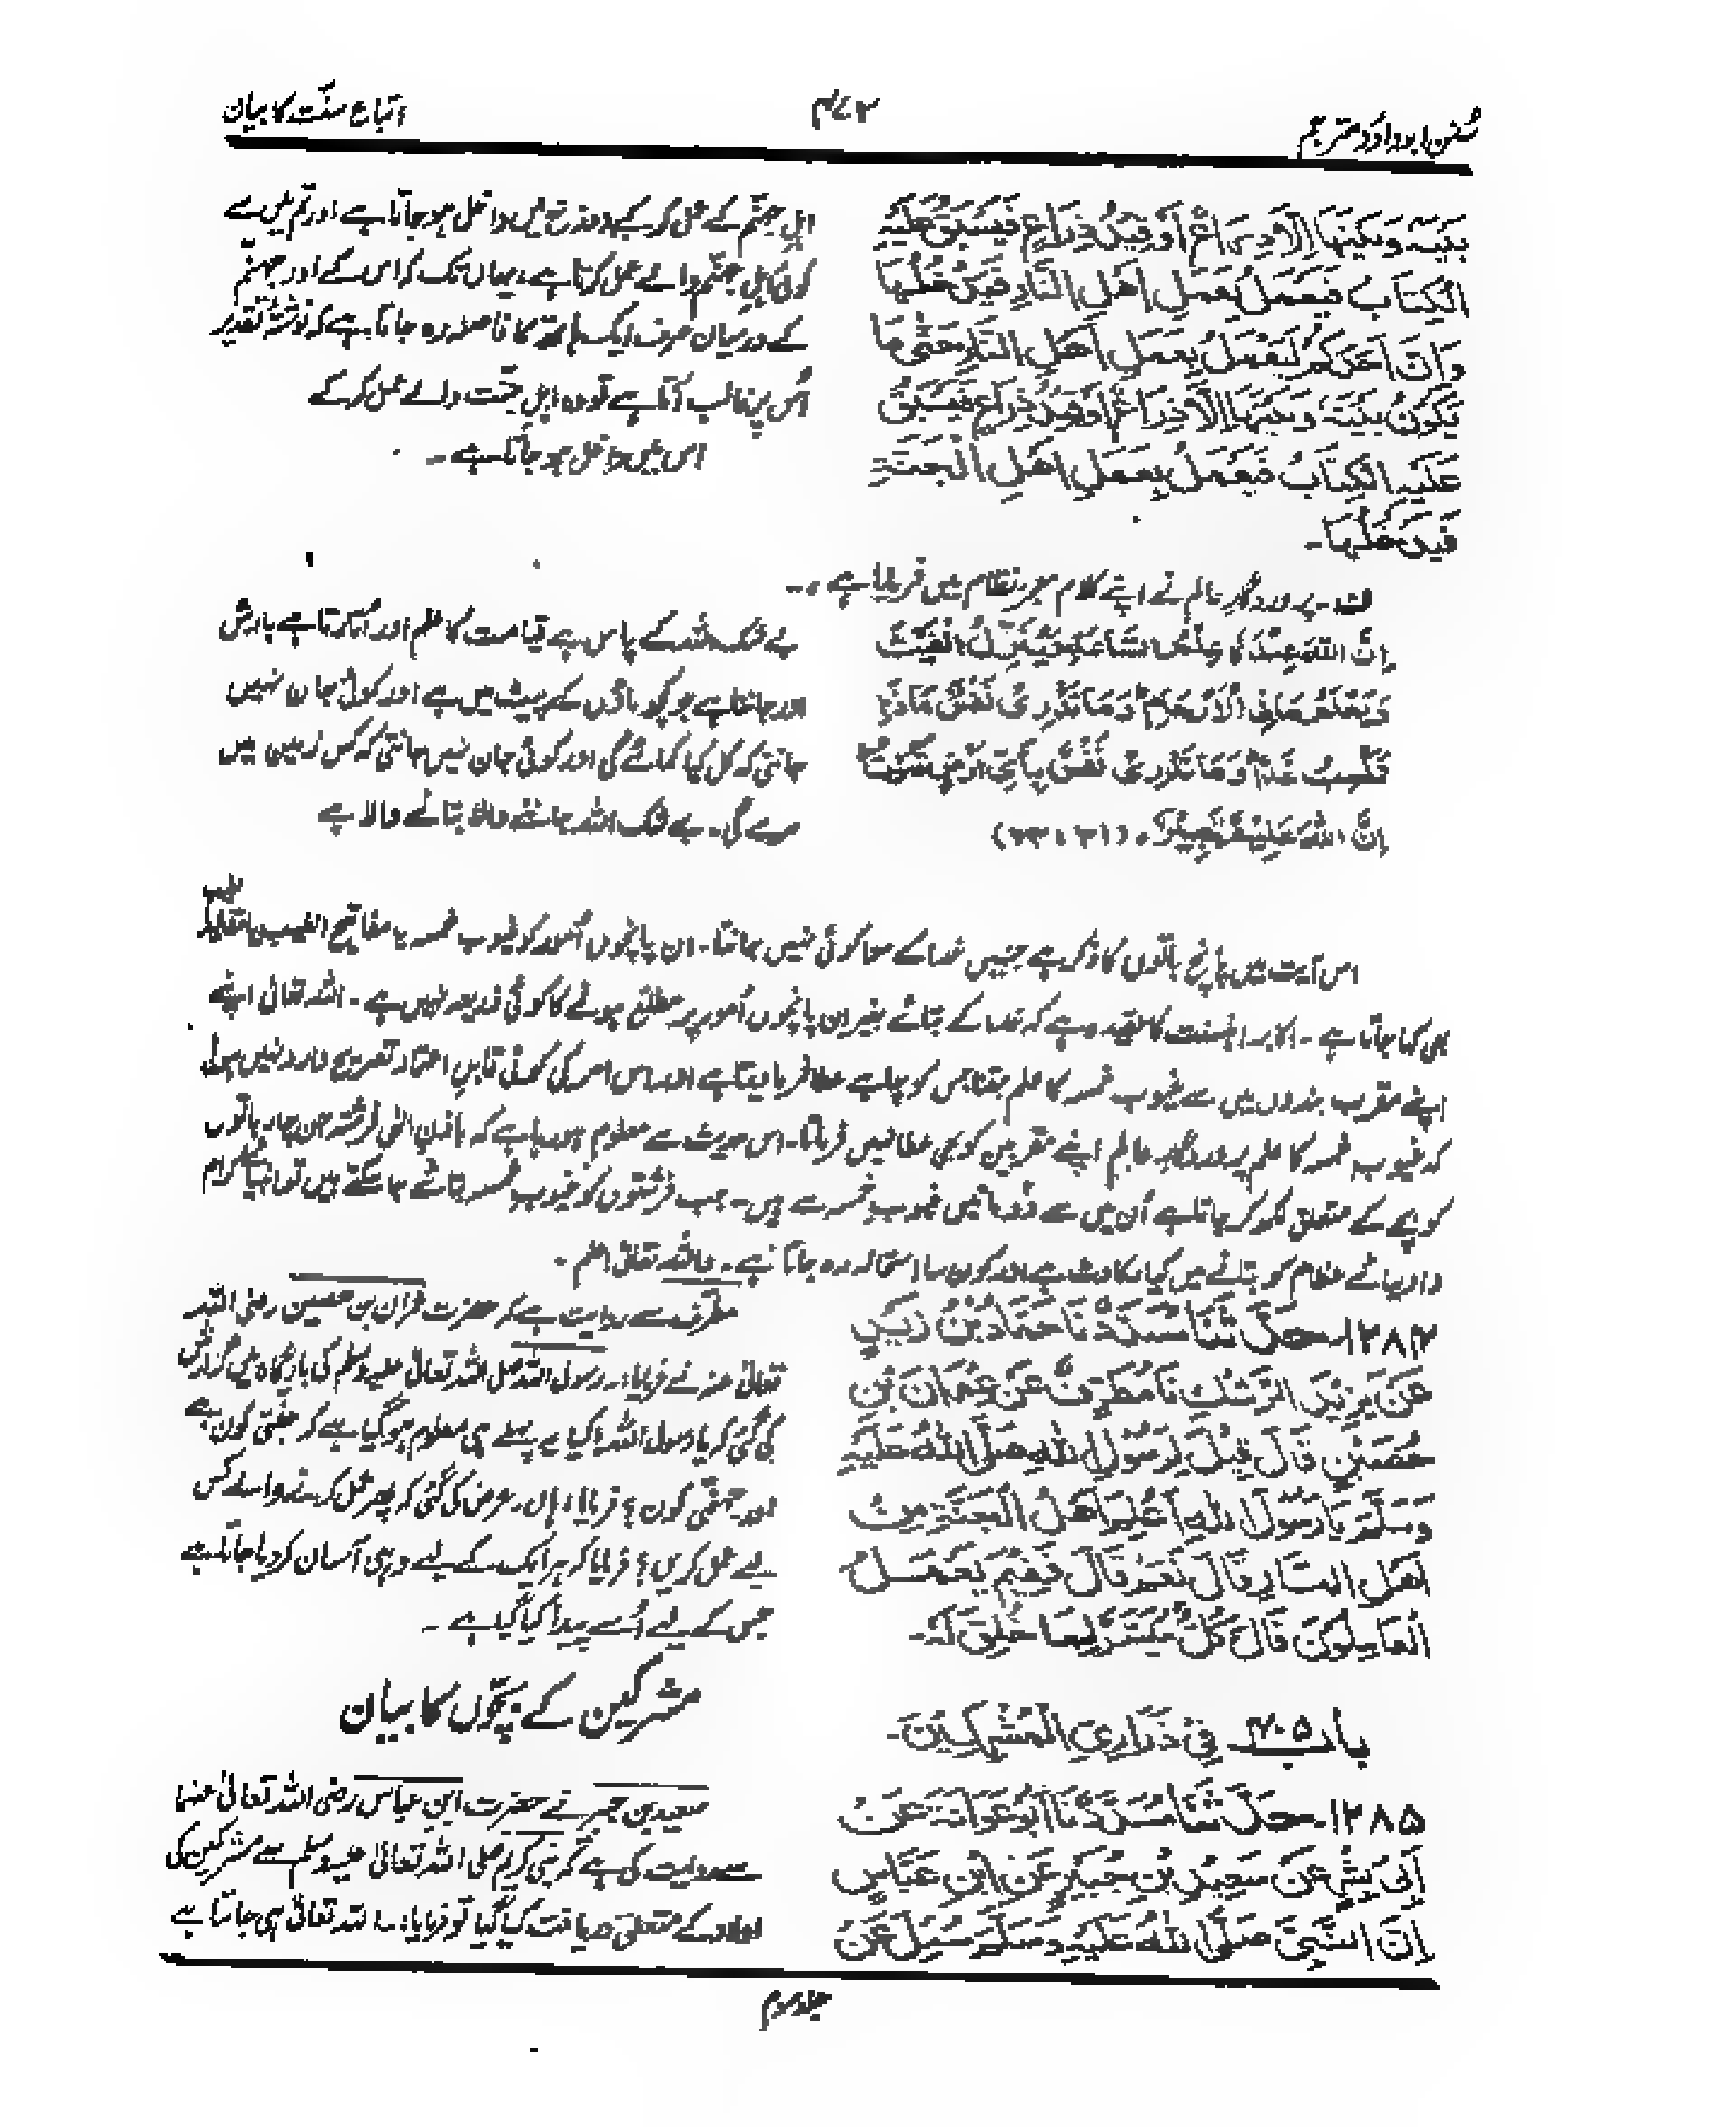 سُنن ابوداؤد مترجم
۴۷۲
اتباع سنّت کا بیان
بَيْنَهُ وَبَيْنَهَا إِلَّا ذِرَاعٌ أَوْ قِيْدُ ذِرَاعٍ فَيَسْبِقُ عَلَيْهِ
الْكِتَابُ فَيَعْمَلُ بِعَمَلِ أَهْلِ النَّارِ فَيَدْخُلُهَا
وَإِنَّ أَحَدَكُمْ لَيَعْمَلُ بِعَمَلِ أَهْلِ النَّارِ حَتّٰى مَا
يَكُوْنُ بَيْنَهُ وَبَيْنَهَا إِلَّا ذِرَاعٌ أَوْ قِيْدُ ذِرَاعٍ فَيَسْبِقُ
عَلَيْهِ الْكِتَابُ فَيَعْمَلُ بِعَمَلِ أَهْلِ الْجَنَّةِ
فَيَدْخُلُهَا۔
اہلِ جہنّم کے عمل کر کے دوزخ میں داخل ہو جاتا ہے اور تم میں سے
کوئی اہلِ جہنّم والے عمل کرتا ہے، یہاں تک کہ اس کے اور جہنّم
کے درمیان صرف ایک ہاتھ کا فاصلہ رہ جاتا ہے کہ نوشتۂ تقدیر
اُس پر غالب آتا ہے تو وہ اہلِ جنّت والے عمل کر کے
اس میں داخل ہو جاتا ہے۔
ف۔ پروردگارِ عالم نے اپنے کلام معجز نظام میں فرمایا ہے:۔
إِنَّ اللّٰهَ عِنْدَهٗ عِلْمُ السَّاعَةِ وَيُنَزِّلُ الْغَيْثَ
وَيَعْلَمُ مَا فِى الْأَرْحَامِ وَمَا تَدْرِىْ نَفْسٌ مَّاذَا
تَكْسِبُ غَدًا وَمَا تَدْرِىْ نَفْسٌ بِأَىِّ أَرْضٍ تَمُوْتُ
إِنَّ اللّٰهَ عَلِيْمٌ خَبِيْرٌ۔ (۳۱، ۳۴)
بے شک اللہ کے پاس ہے قیامت کا علم اور اُتارتا ہے بارش
اور جانتا ہے جو کچھ ماؤں کے پیٹ میں ہے اور کوئی جان نہیں
جانتی کہ کل کیا کمائے گی اور کوئی جان نہیں جانتی کہ کس زمین میں
مرے گی۔ بے شک اللہ جاننے والا بتانے والا ہے
اس آیت میں پانچ باتوں کا ذکر ہے جنہیں خدا کے سوا کوئی نہیں جانتا۔ ان پانچوں اُمور کو غیوبِ خمسہ یا مفاتیح الغیب
بھی کہا جاتا ہے۔ اکابر اہلسنت کا عقیدہ ہے کہ خدا کے بتائے بغیر ان پانچوں اُمور پر مطلع ہونے کا کوئی ذریعہ نہیں ہے۔ اللہ تعالیٰ اپنے
اپنے مقرب بندوں میں سے غیوبِ خمسہ کا علم جتنا جس کو چاہے عطا فرما دیتا ہے اور اس امر کی کوئی قابلِ اعتماد تصریح وارد نہیں ہوئی
کہ غیوبِ خمسہ کا علم پروردگارِ عالم اپنے مقربین کو بھی عطا نہیں فرماتا۔ اس حدیث سے معلوم ہو رہا ہے کہ باذنِ الٰہی فرشتہ جن چار باتوں
کو بچے کے متعلق لکھ کر جاتا ہے اُن میں سے دو باتیں غیوبِ خمسہ سے ہیں۔ جب فرشتوں کو غیوبِ خمسہ بتائے جا سکتے ہیں تو انبیائے کرام
و اولیائے عظام کو بتانے میں کیا رکاوٹ ہے اور کون سا استحالہ رہ جاتا ہے۔ واللہ تعالیٰ اعلم۔
۱۲۸۴۔ حَدَّثَنَا مُسَدَّدٌ نَا حَمَّادُ بْنُ زَيْدٍ
عَنْ يَزِيْدَ الرِّشْكِ نَا مُطَرِّفٌ عَنْ عِمْرَانَ بْنِ
حُصَيْنٍ قَالَ قِيْلَ لِرَسُوْلِ اللّٰهِ صَلَّى اللّٰهُ عَلَيْهِ
وَسَلَّمَ يَا رَسُوْلَ اللّٰهِ أَعُلِمَ أَهْلُ الْجَنَّةِ مِنْ
أَهْلِ النَّارِ قَالَ نَعَمْ قَالَ فَفِيْمَ يَعْمَلُ
الْعَامِلُوْنَ قَالَ كُلٌّ مُيَسَّرٌ لِمَا خُلِقَ لَهُ۔
مطرف سے روایت ہے کہ حضرت عمران بن حصین رضی اللہ
تعالیٰ عنہ نے فرمایا:۔ رسول اللہ صلی اللہ تعالیٰ علیہ وسلم کی بارگاہ میں گزارش
کی گئی کہ یا رسول اللہ! کیا یہ پہلے ہی معلوم ہو گیا ہے کہ جنتی کون ہے
اور جہنّمی کون؟ فرمایا، ہاں۔ عرض کی گئی کہ پھر عمل کرنے والے کس
لیے عمل کریں؟ فرمایا کہ ہر ایک کے لیے وہی آسان کر دیا جاتا ہے
جس کے لیے اُسے پیدا کیا گیا ہے۔
باب ۴۰۵ فِىْ ذَرَارِى الْمُشْرِكِيْنَ۔
مشرکین کے بچّوں کا بیان
۱۲۸۵۔ حَدَّثَنَا مُسَدَّدٌ نَا أَبُوْ عَوَانَةَ عَنْ
أَبِىْ بِشْرٍ عَنْ سَعِيْدِ بْنِ جُبَيْرٍ عَنِ ابْنِ عَبَّاسٍ
إِنَّ النَّبِىَّ صَلَّى اللّٰهُ عَلَيْهِ وَسَلَّمَ سُئِلَ عَنْ
سعید بن جبیر نے حضرت ابنِ عباس رضی اللہ تعالیٰ عنہما
سے روایت کی ہے کہ نبی کریم صلی اللہ تعالیٰ علیہ وسلم سے مشرکین کی
اولاد کے متعلق دریافت کیا گیا تو فرمایا:۔ اللہ تعالیٰ ہی جانتا ہے
جلد سوم